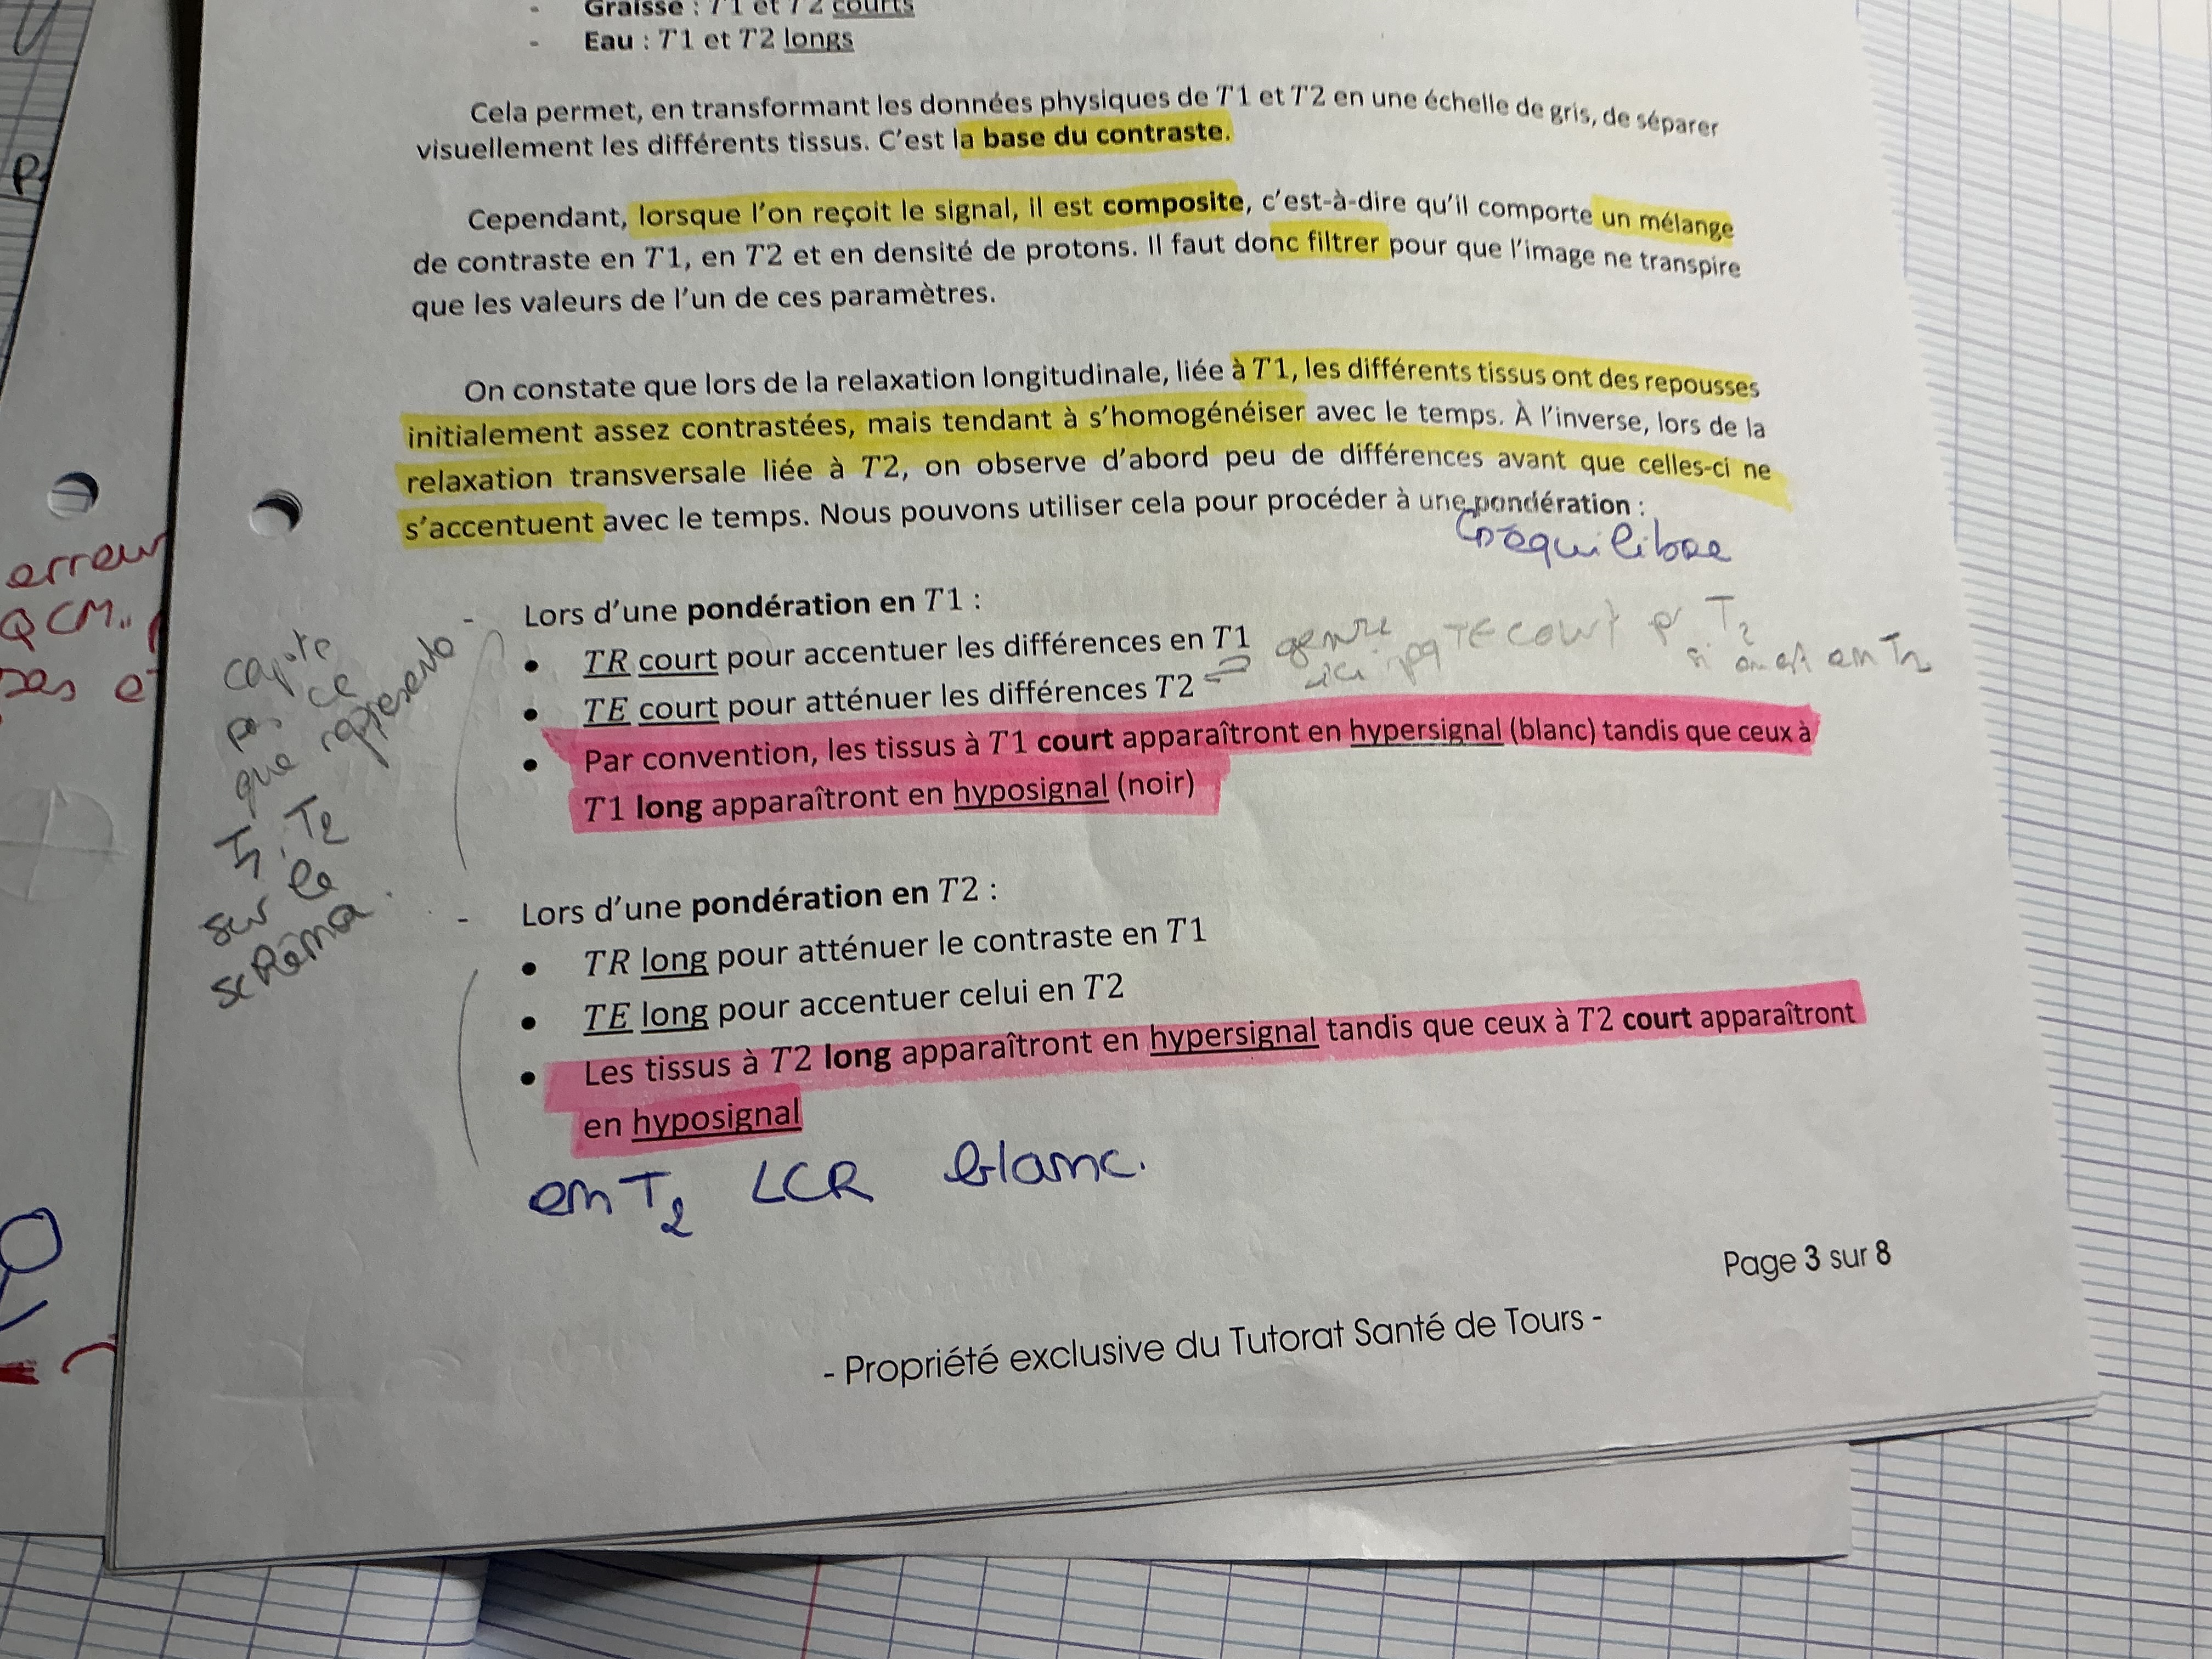 - Graisse : T1 et T2 courts
- Eau : T1 et T2 longs
Cela permet, en transformant les données physiques de T1 et T2 en une échelle de gris, de séparer
visuellement les différents tissus. C'est la base du contraste.
Cependant, lorsque l'on reçoit le signal, il est composite, c'est-à-dire qu'il comporte un mélange
de contraste en T1, en T2 et en densité de protons. Il faut donc filtrer pour que l'image ne transpire
que les valeurs de l'un de ces paramètres.
On constate que lors de la relaxation longitudinale, liée à T1, les différents tissus ont des repousses
initialement assez contrastées, mais tendant à s'homogénéiser avec le temps. À l'inverse, lors de la
relaxation transversale liée à T2, on observe d'abord peu de différences avant que celles-ci ne
s'accentuent avec le temps. Nous pouvons utiliser cela pour procéder à une pondération :
équilibre
- Lors d'une pondération en T1 :
• TR court pour accentuer les différences en T1
• TE court pour atténuer les différences T2
genre
ici pq TE court pr T2
si on est en T1
• Par convention, les tissus à T1 court apparaîtront en hypersignal (blanc) tandis que ceux à
T1 long apparaîtront en hyposignal (noir)
- Lors d'une pondération en T2 :
• TR long pour atténuer le contraste en T1
• TE long pour accentuer celui en T2
• Les tissus à T2 long apparaîtront en hypersignal tandis que ceux à T2 court apparaîtront
en hyposignal
en T2 LCR blanc.
capte
pas ce
que représente
T1, T2
sur le
schéma.
erreur
QCM..
Page 3 sur 8
- Propriété exclusive du Tutorat Santé de Tours -